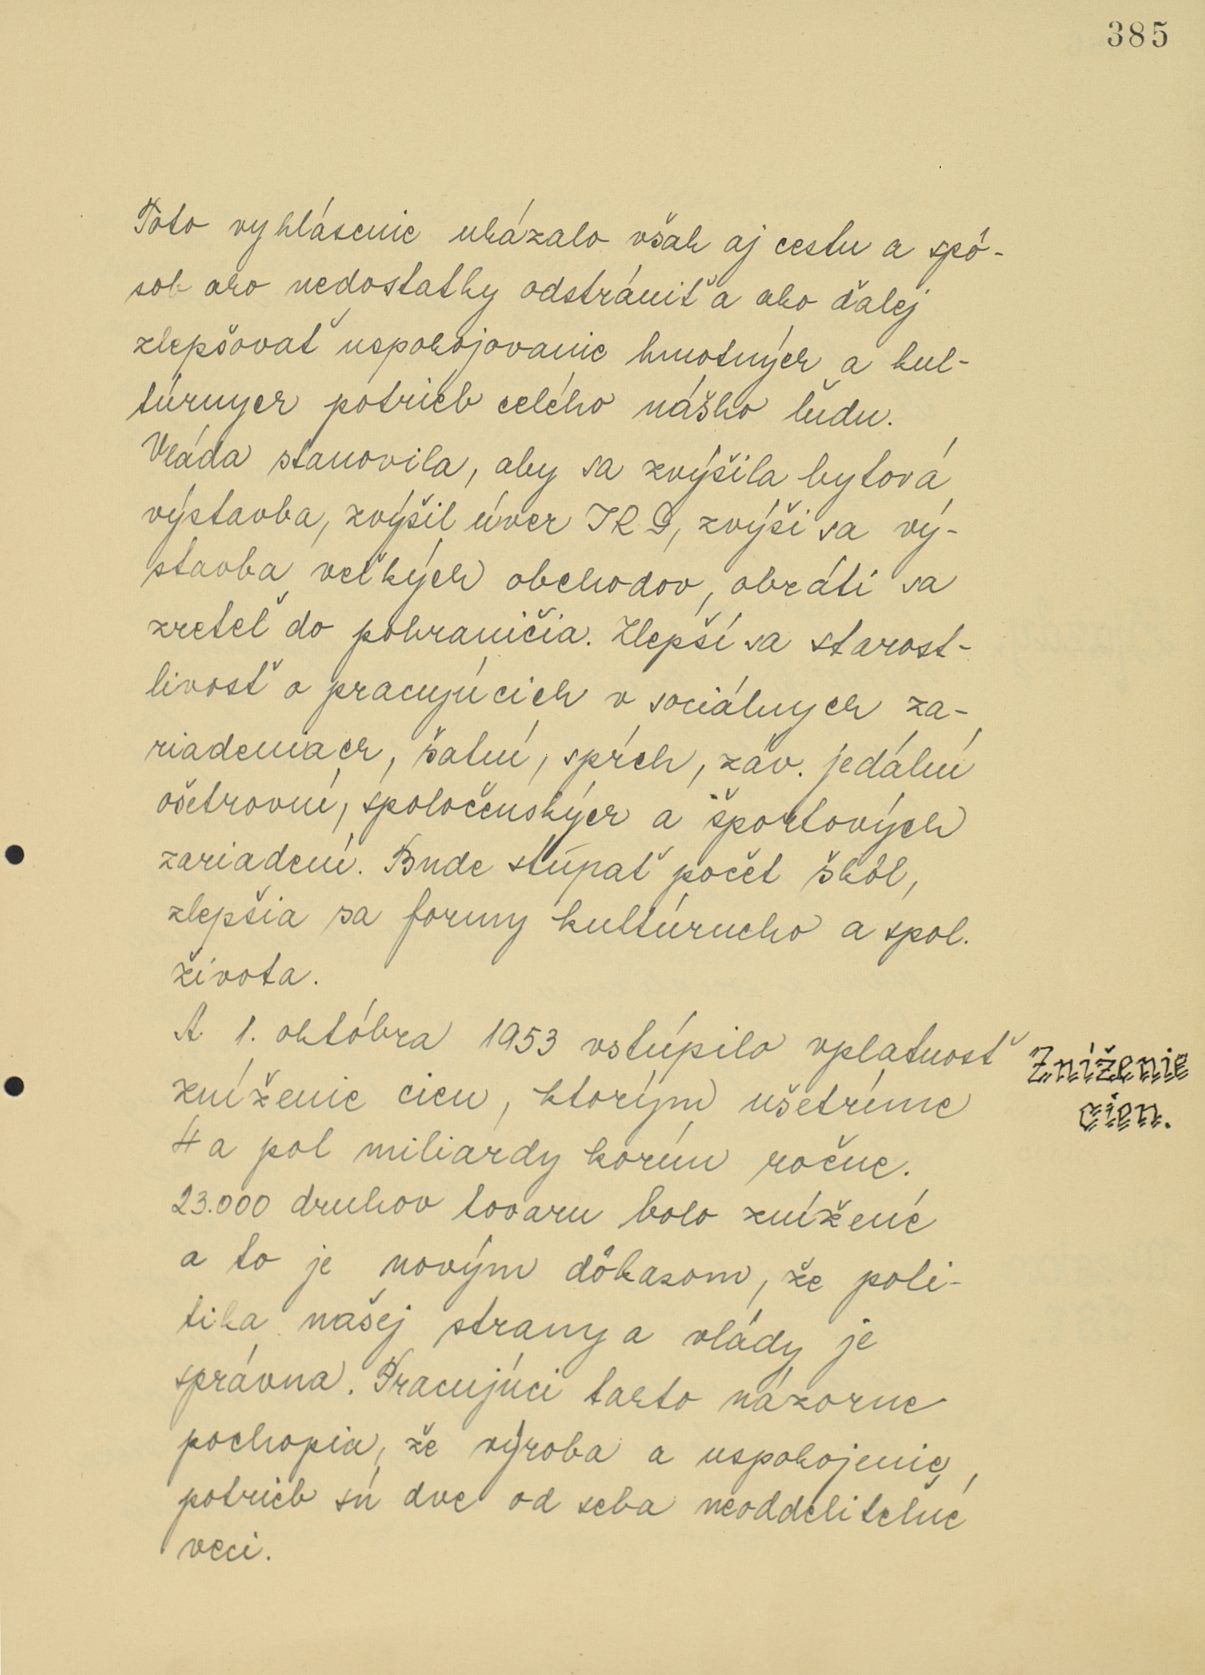 385
Toto vyhlásenie ukázalo však aj cestu a spô-
sob ako nedostatky odstrániť a ako ďalej
zlepšovať uspokojovanie hmotných a kul-
túrnych potrieb celého nášho ľudu.
Vláda stanovila, aby sa zvýšila bytová
výstavba, zvýšil úver JRD, zvýši sa vý-
stavba veľkých obchodov, obráti sa
zreteľ do pohraničia. Zlepší sa starost-
livosť o pracujúcich v sociálnych za-
riadeniach, šatní, spŕch, záv. jedální
ošetrovní, spoločenských a športových
zariadení. Bude stúpať počet škôl,
zlepšia sa formy kultúrneho a spol.
života.
A 1. októbra 1953 vstúpilo vplatnosť
zníženie cien, ktorým ušetríme
4 a pol miliardy korún ročne.
23.000 druhov tovaru bolo znížené
a to je novým dôkazom, že poli-
tika našej strany a vlády je
správna. Pracujúci takto názorne
pochopia, že výroba a uspokojenie
potrieb sú dve od seba neoddeliteľné
veci.
Zníženie
cien.